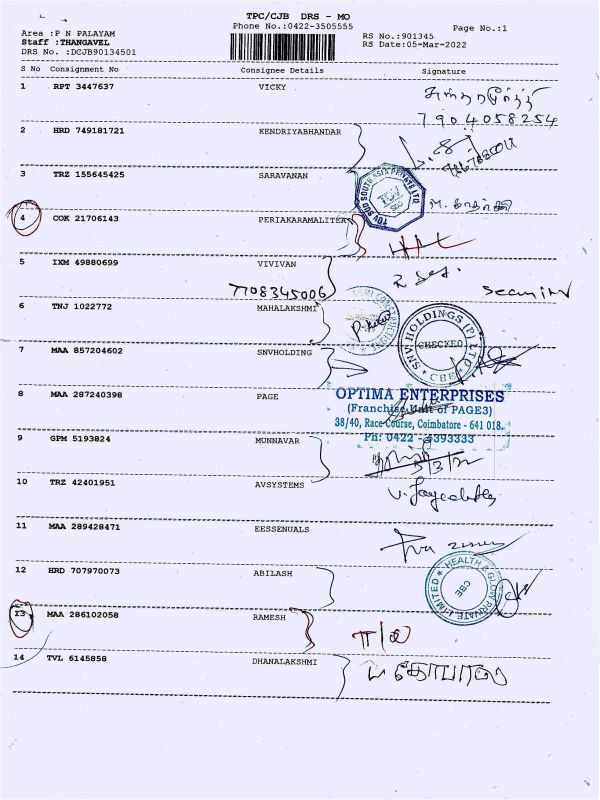 TPC/CJB DRS - MO
Phone No.:0422-3505555
Page No.:1
Area :P N PALAYAM
Staff :THANGAVEL
DRS No. :DCJB90134501
RS No.:901345
RS Date:05-Mar-2022
S No Consignment No Consignee Details Signature
1 RPT 3447637 VICKY
7904058254
2 HRD 749181721 KENDRIYABHANDAR
3 TRZ 155645425 SARAVANAN
TUV SUD SOUTH ASIA PRIVATE LTD.
4 COK 21706143 PERIAKARAMALITEA
5 IXM 49880699 VIVIVAN
7708345006
6 TNJ 1022772 MAHALAKSHMI
SNV HOLDINGS (P) LTD
CHECKED
CBE
7 MAA 857204602 SNVHOLDING
8 MAA 287240398 PAGE
OPTIMA ENTERPRISES
(Franchise Unit of PAGE3)
38/40, Race Course, Coimbatore - 641 018.
Ph: 0422 - 4393333
9 GPM 5193824 MUNNAVAR
5/3/22
10 TRZ 42401951 AVSYSTEMS
11 MAA 289428471 EESSENUALS
12 HRD 707970073 ABILASH
HEALTH & GLOW PRIVATE LIMITED
CBE
13 MAA 286102058 RAMESH
14 TVL 6145858 DHANALAKSHMI